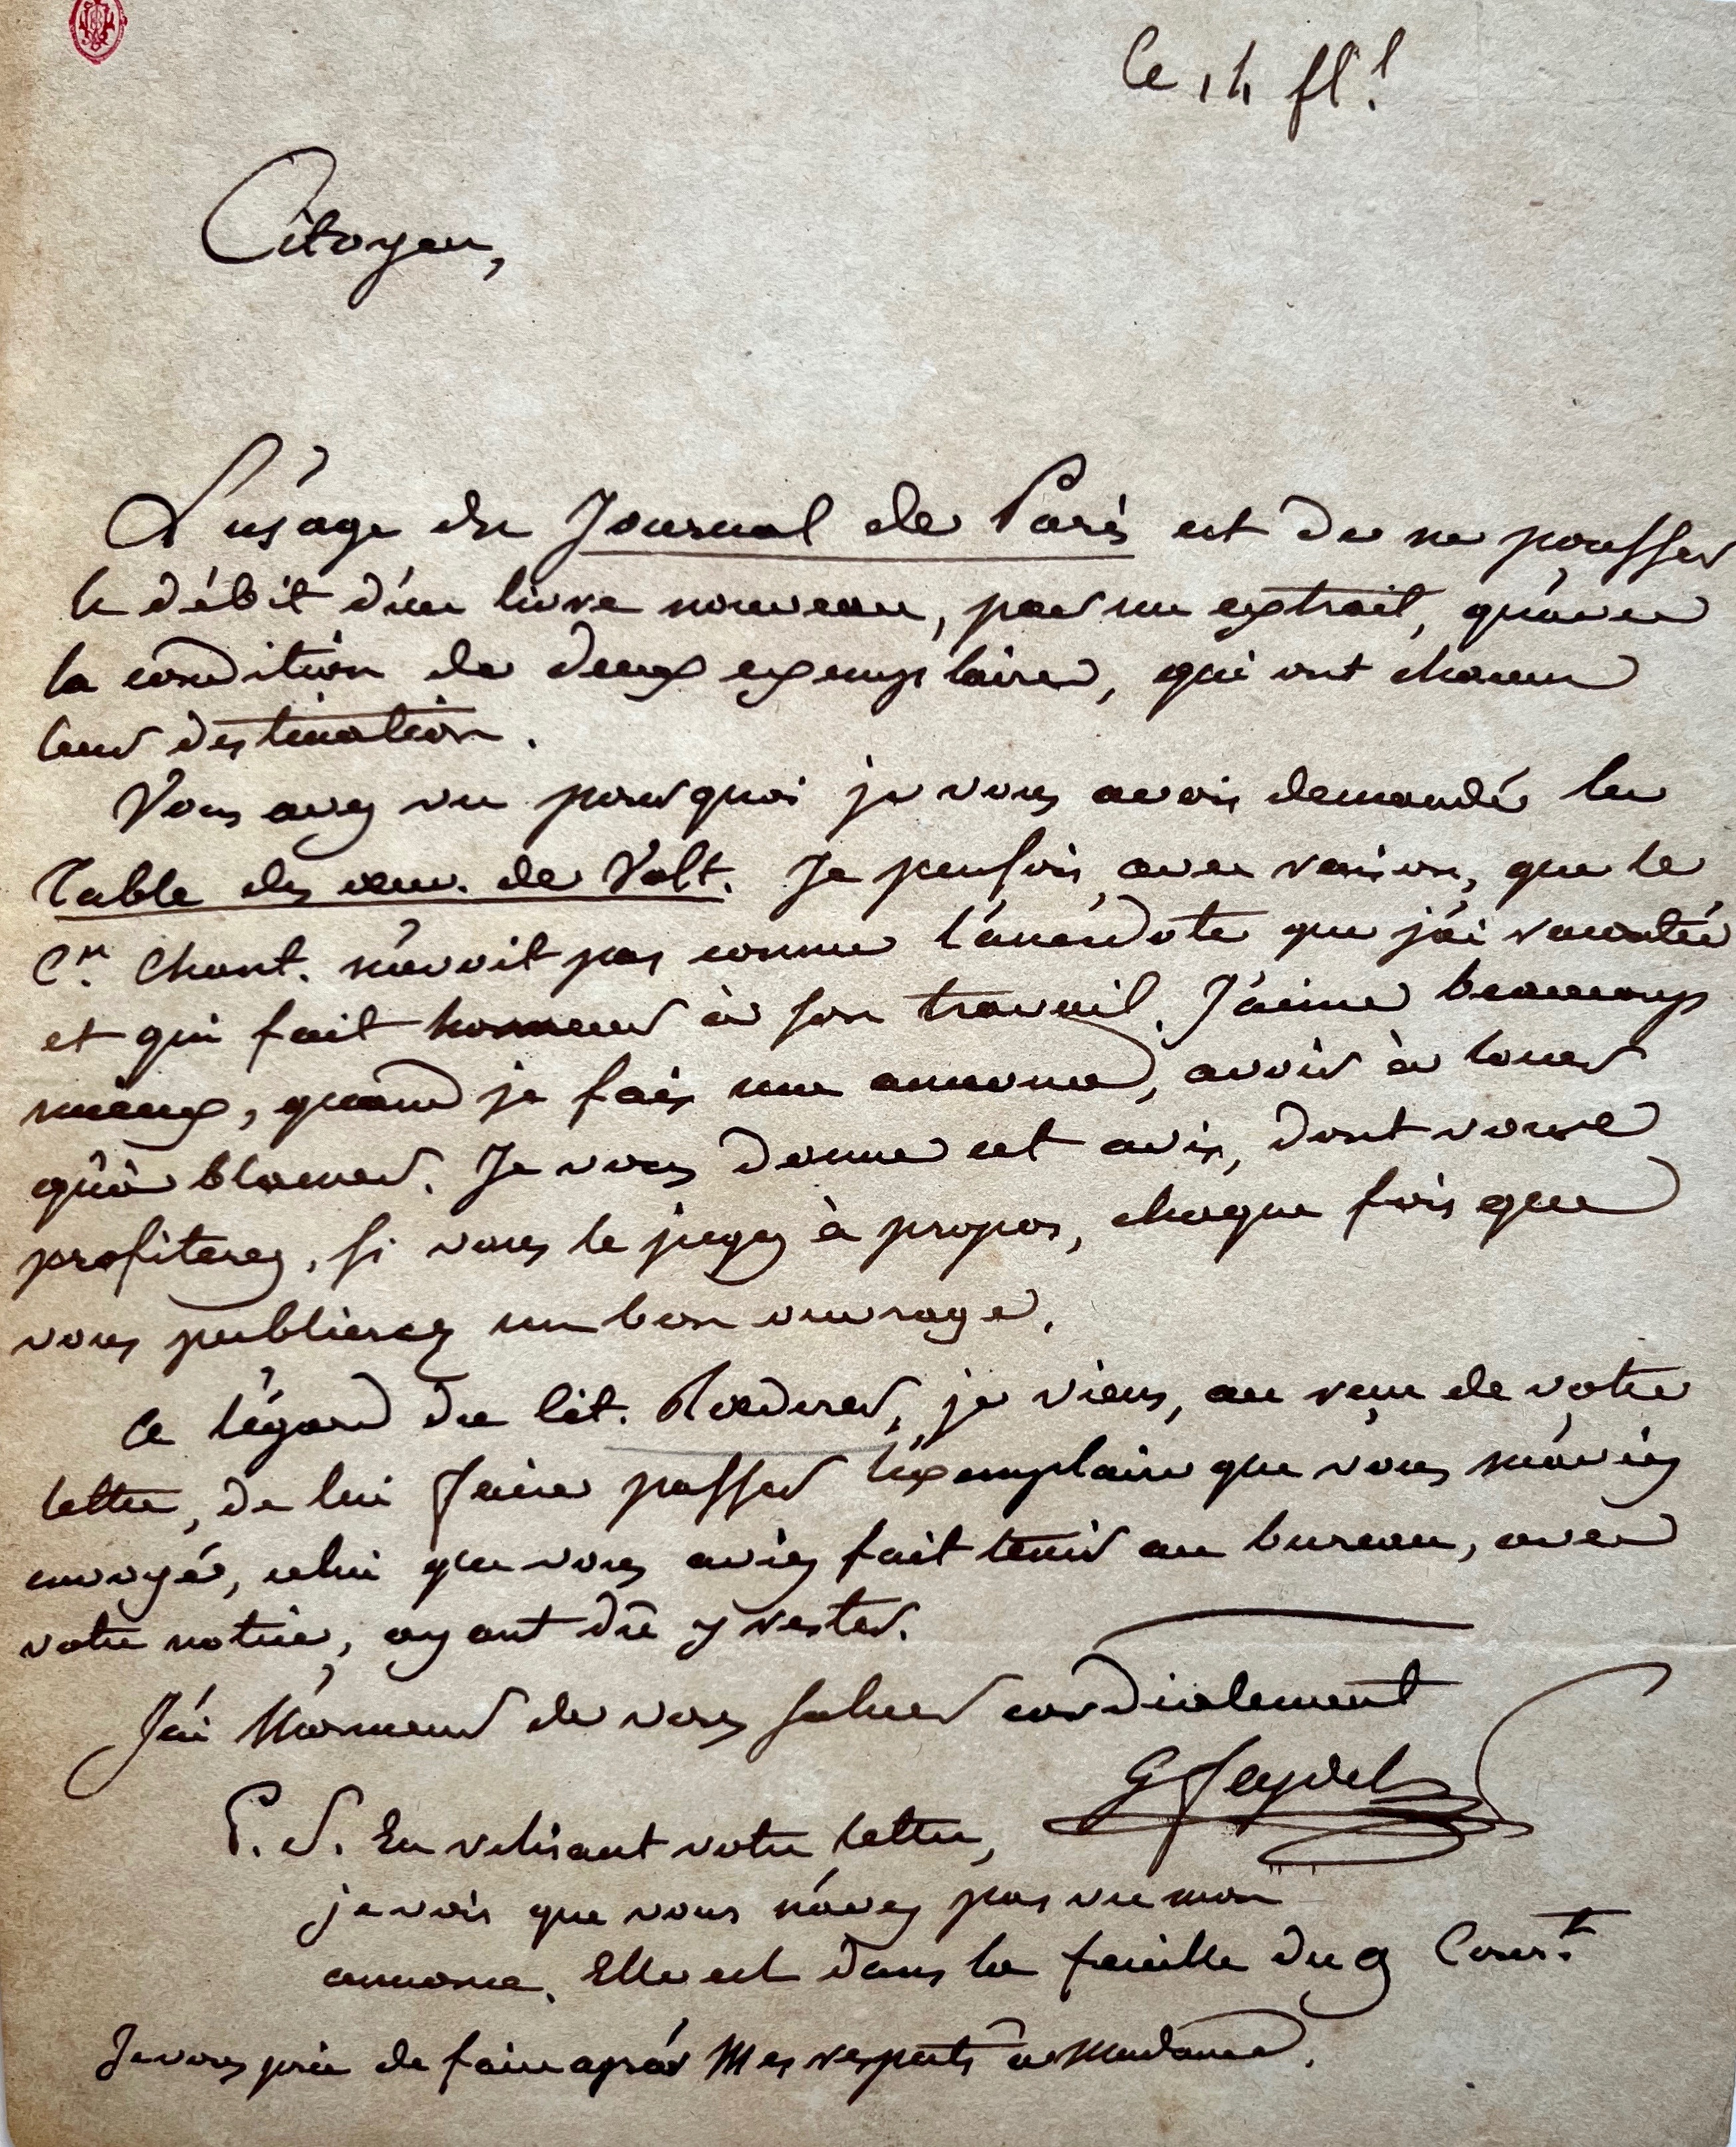 Ce 14 fl.l
Citoyen,
L'usage du Journal de Paris est de ne pousser
le débit d'un livre nouveau, par un extrait, qu'avec
la condition de deux exemplaires, qui ont chacun
leur destination.
Vous avez vu pourquoi je vous avois demandé la
Table des œuv. de Volt. Je pensois, avec raison, que le
C.en Chant. n'avoit pas connu l'anecdote que j'ai racontée
et qui fait honneur à son travail. J'aime beaucoup
mieux, quand je fais une annonce, avoir à louer
qu'à blamer. Je vous donne cet avis, dont vous
profiterez, si vous le jugez à propos, chaque fois que
vous publierez un bon ouvrage.
A l'égard du Cit. Rœderer, je viens, au reçu de votre
lettre, de lui faire passer l'exemplaire que vous m'aviez
envoyé, celui que vous aviez fait tenir au bureau, avec
votre notice, ayant dû y rester.
J'ai l'honneur de vous saluer cordialement
G Feydel
P. S. En relisant votre lettre,
je vois que vous n'avez pas vu mon
annonce. Elle est dans la feuille du 9 Cour.t
Je vous prie de faire agréer Mes respects à Madame.